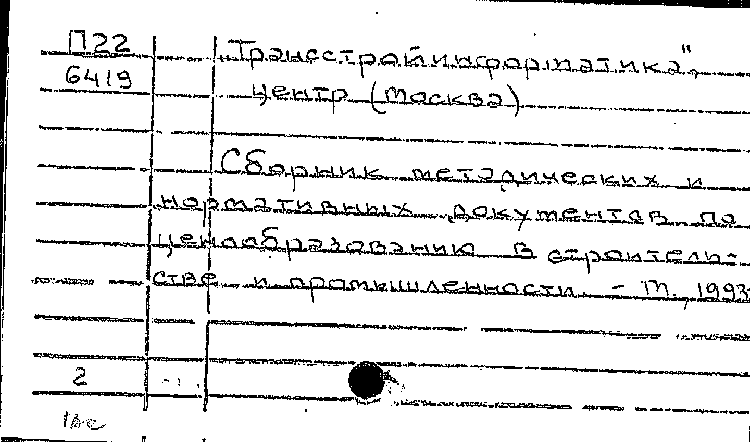 П22
6419
„Трансстройинформатика",
центр (Москва)
Сборник методических и
нормативных документов по
ценообразованию в строитель-
стве и промышленности. - М., 1993
2